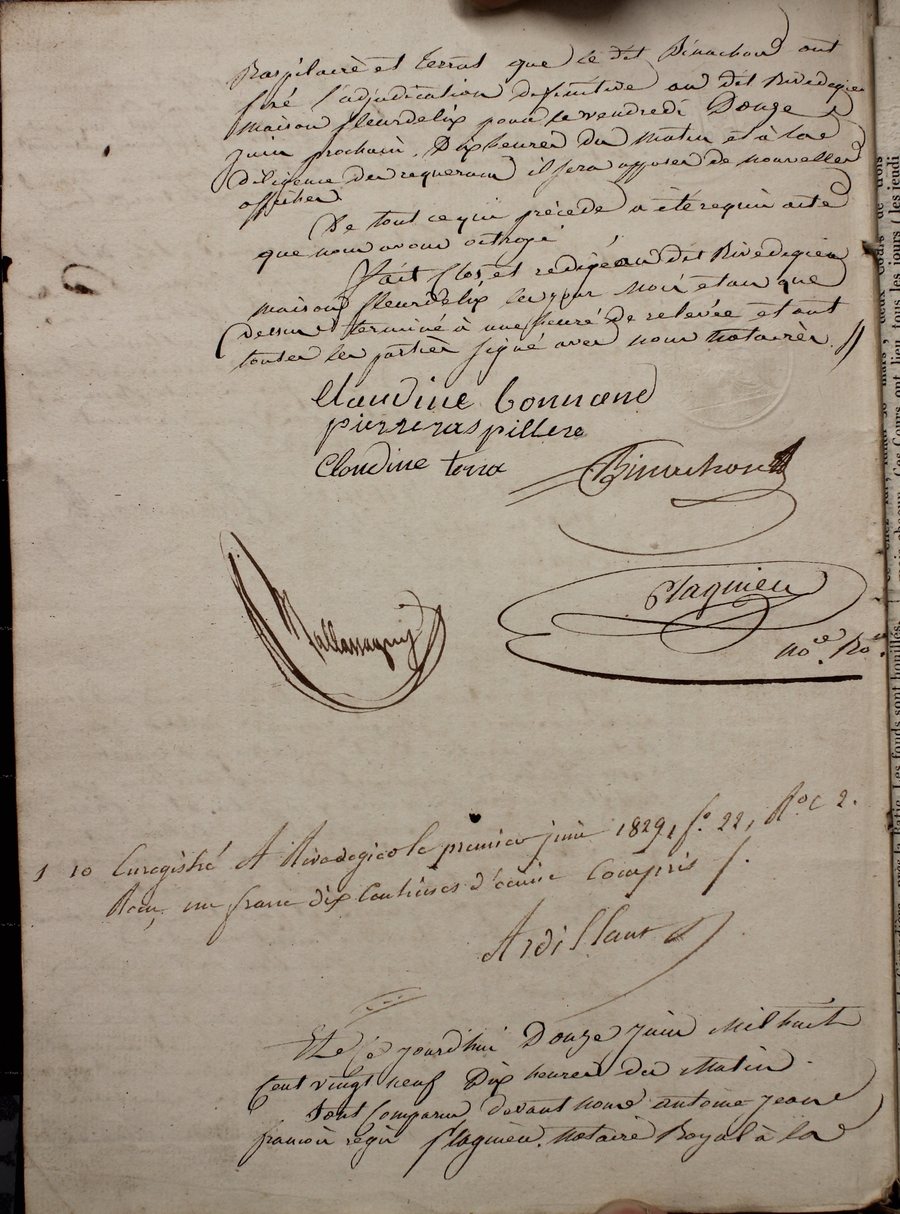 Raspilaire et Terrat que le dit Binachon ont
fixé l'adjudication definitive au dit Rivedegier
maison fleurdelix pour le vendredi Douze
juin prochain, Dix heures du Matin et à la
Diligence des requerans il sera apposer de nouvelles
affiches
De tout ce qui précède a été requis acte
que nous avons octroyé
Fait clos et redigé au dit Rivedegier
maison fleurdelix les jour mois et an que
dessus terminé à une heure de relevée et ont
toutes les parties signé avec nous notaires.
Claudine bonnand
pierre raspillere
Cloudine terra
Binachon
Flagnieu
no.re Ro.
1 10 Enregistré A Rivedegier le premier juin 1829, fo. 22, Ro C 2.
Reçu un franc dix Centimes d'écime Compris
Ardillant
Et le jourd'hui Douze juin Mil huit
Cent vingt neuf Dix heures du Matin
Sont Comparus devant nous antoine jean
francois régis flagnieu notaire Royal à la
les fonds sont houillés.
deux cours de trois
Ces Cours ont lieu tous les jours (les jeudi